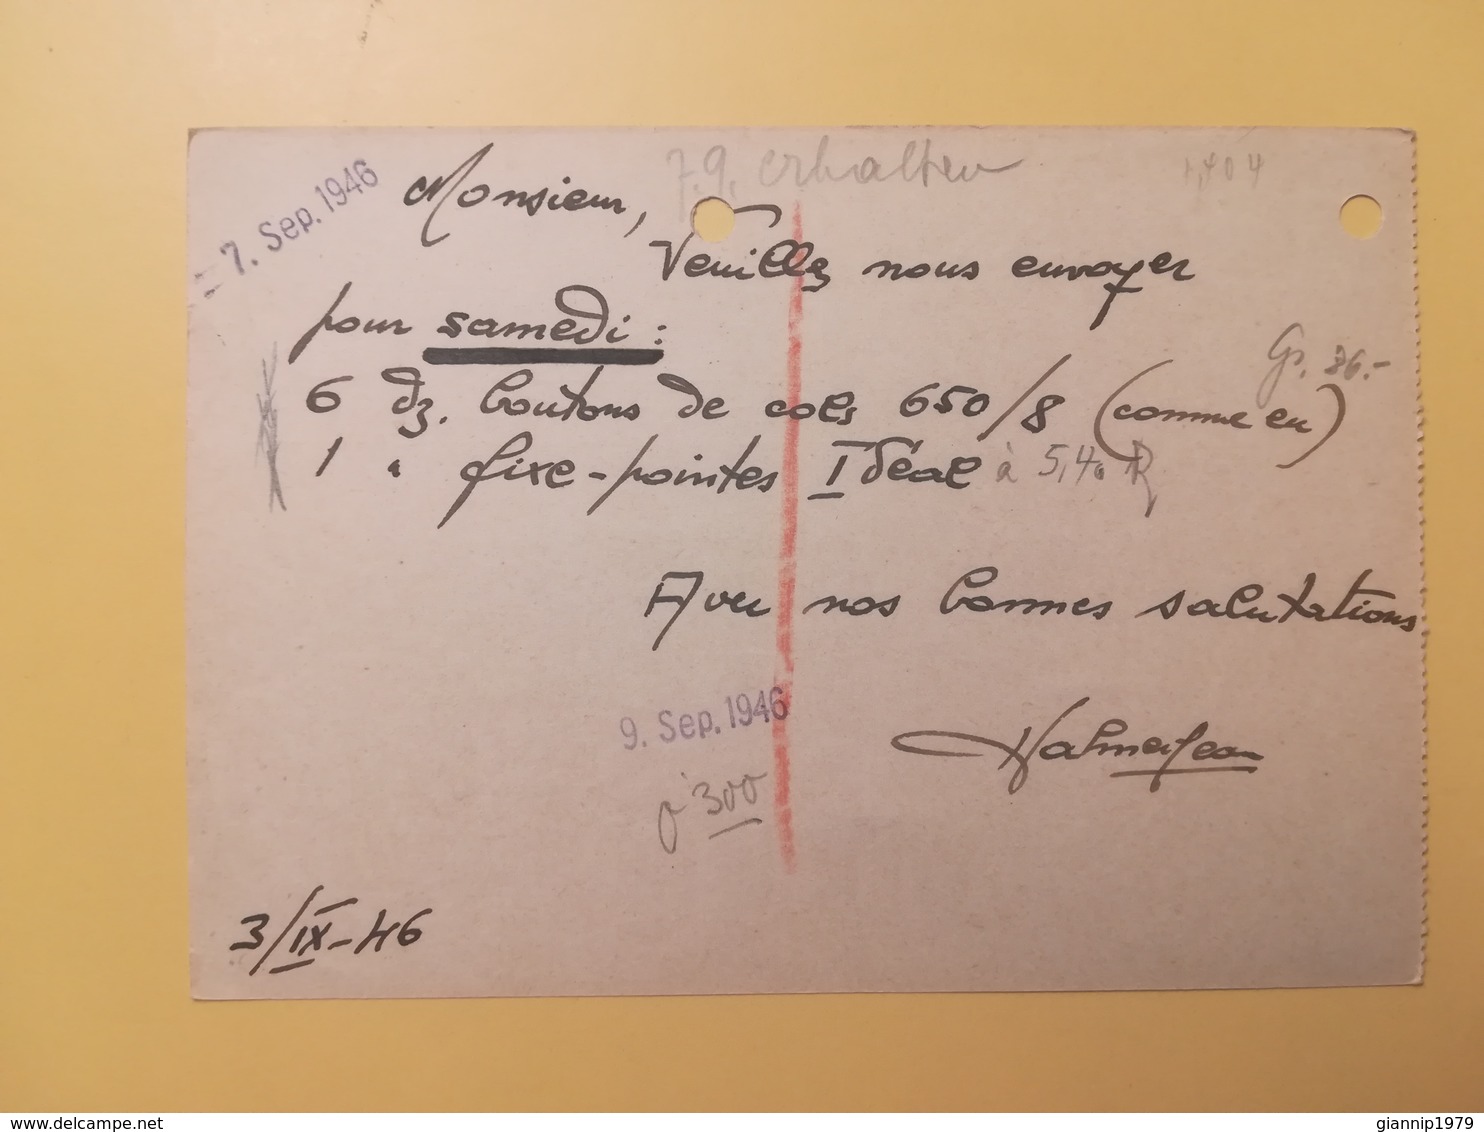 7. Sep. 1946
7.9. erhalten
1,404
Monsieur,
Veuillez nous envoyer
pour samedi :
6 dz. boutons de cols 650/8 (comme en)
Gr. 36.-
1 " fixe-pointes Idéal à 5,40
Avec nos bonnes salutations
9. Sep. 1946
300
3/IX-46
© delcampe.net
giannip1979